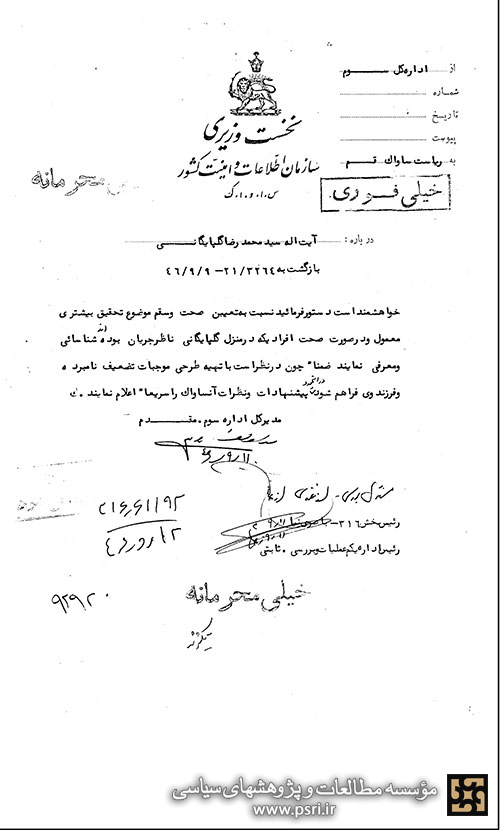 از اداره کل سوم
شماره
تاریخ
پیوست
به ریاست ساواک قم
نخست وزیری
سازمان اطلاعات و امنیت کشور
س.ا.و.ا.ک
محرمانه
خیلی فوری
درباره: آیت اله سید محمد رضا گلپایگانی
بازگشت به ۲۱/۳۲۶۴-۴۶/۹/۹
خواهشمند است دستور فرمائید نسبت به تعیین صحت و سقم موضوع تحقیق بیشتری
معمول و در صورت صحت افرادیکه در منزل گلپایگانی ناظر جریان بوده اند شناسائی
و معرفی نمایند ضمنا" چون در نظر است با تهیه طرحی موجبات تضعیف نامبرده
و فرزند وی فراهم شود پیشنهادات و نظرات آنساواک را سریعا" اعلام نمایند. ک
مدیرکل اداره سوم. مقدم
رئیس بخش ۳۱۶-
رئیس اداره یکم عملیات و بررسی. ثابتی
خیلی محرمانه
۹۲۹۲۰
مؤسسه مطالعات و پژوهشهای سیاسی
www.psri.ir